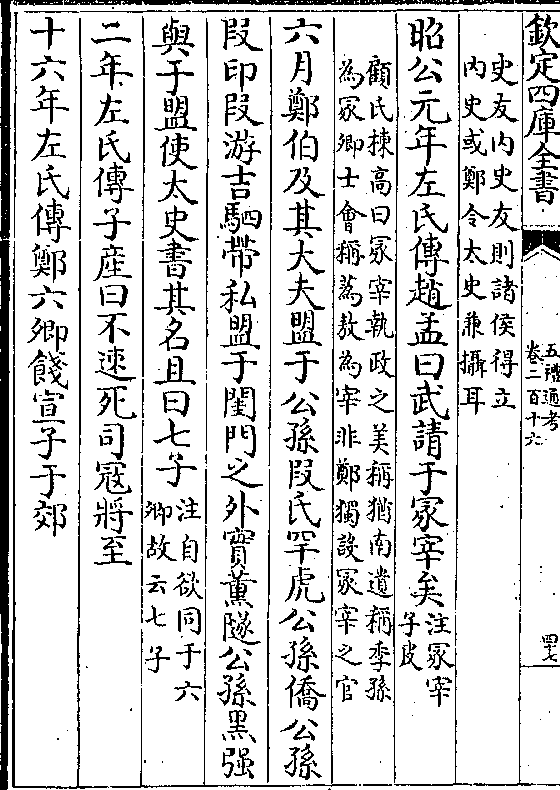 欽定四庫全書
五禮通考
卷二百十六
四七
史友内史友則諸侯得立
内史或鄭令太史兼攝耳
昭公元年左氏傳趙孟曰武請于冢宰矣注冢宰
子皮
顧氏棟高曰冢宰執政之美稱猶南遺稱季孫
為冢卿士會稱蒍敖為宰非鄭獨設冢宰之官
六月鄭伯及其大夫盟于公孫段氏罕虎公孫僑公孫
段印段游吉駟帶私盟于閨門之外實薰隧公孫黑强
與于盟使太史書其名且曰七子注自欲同于六
卿故云七子
二年左氏傳子産曰不速死司冦將至
十六年左氏傳鄭六卿餞宣子于郊